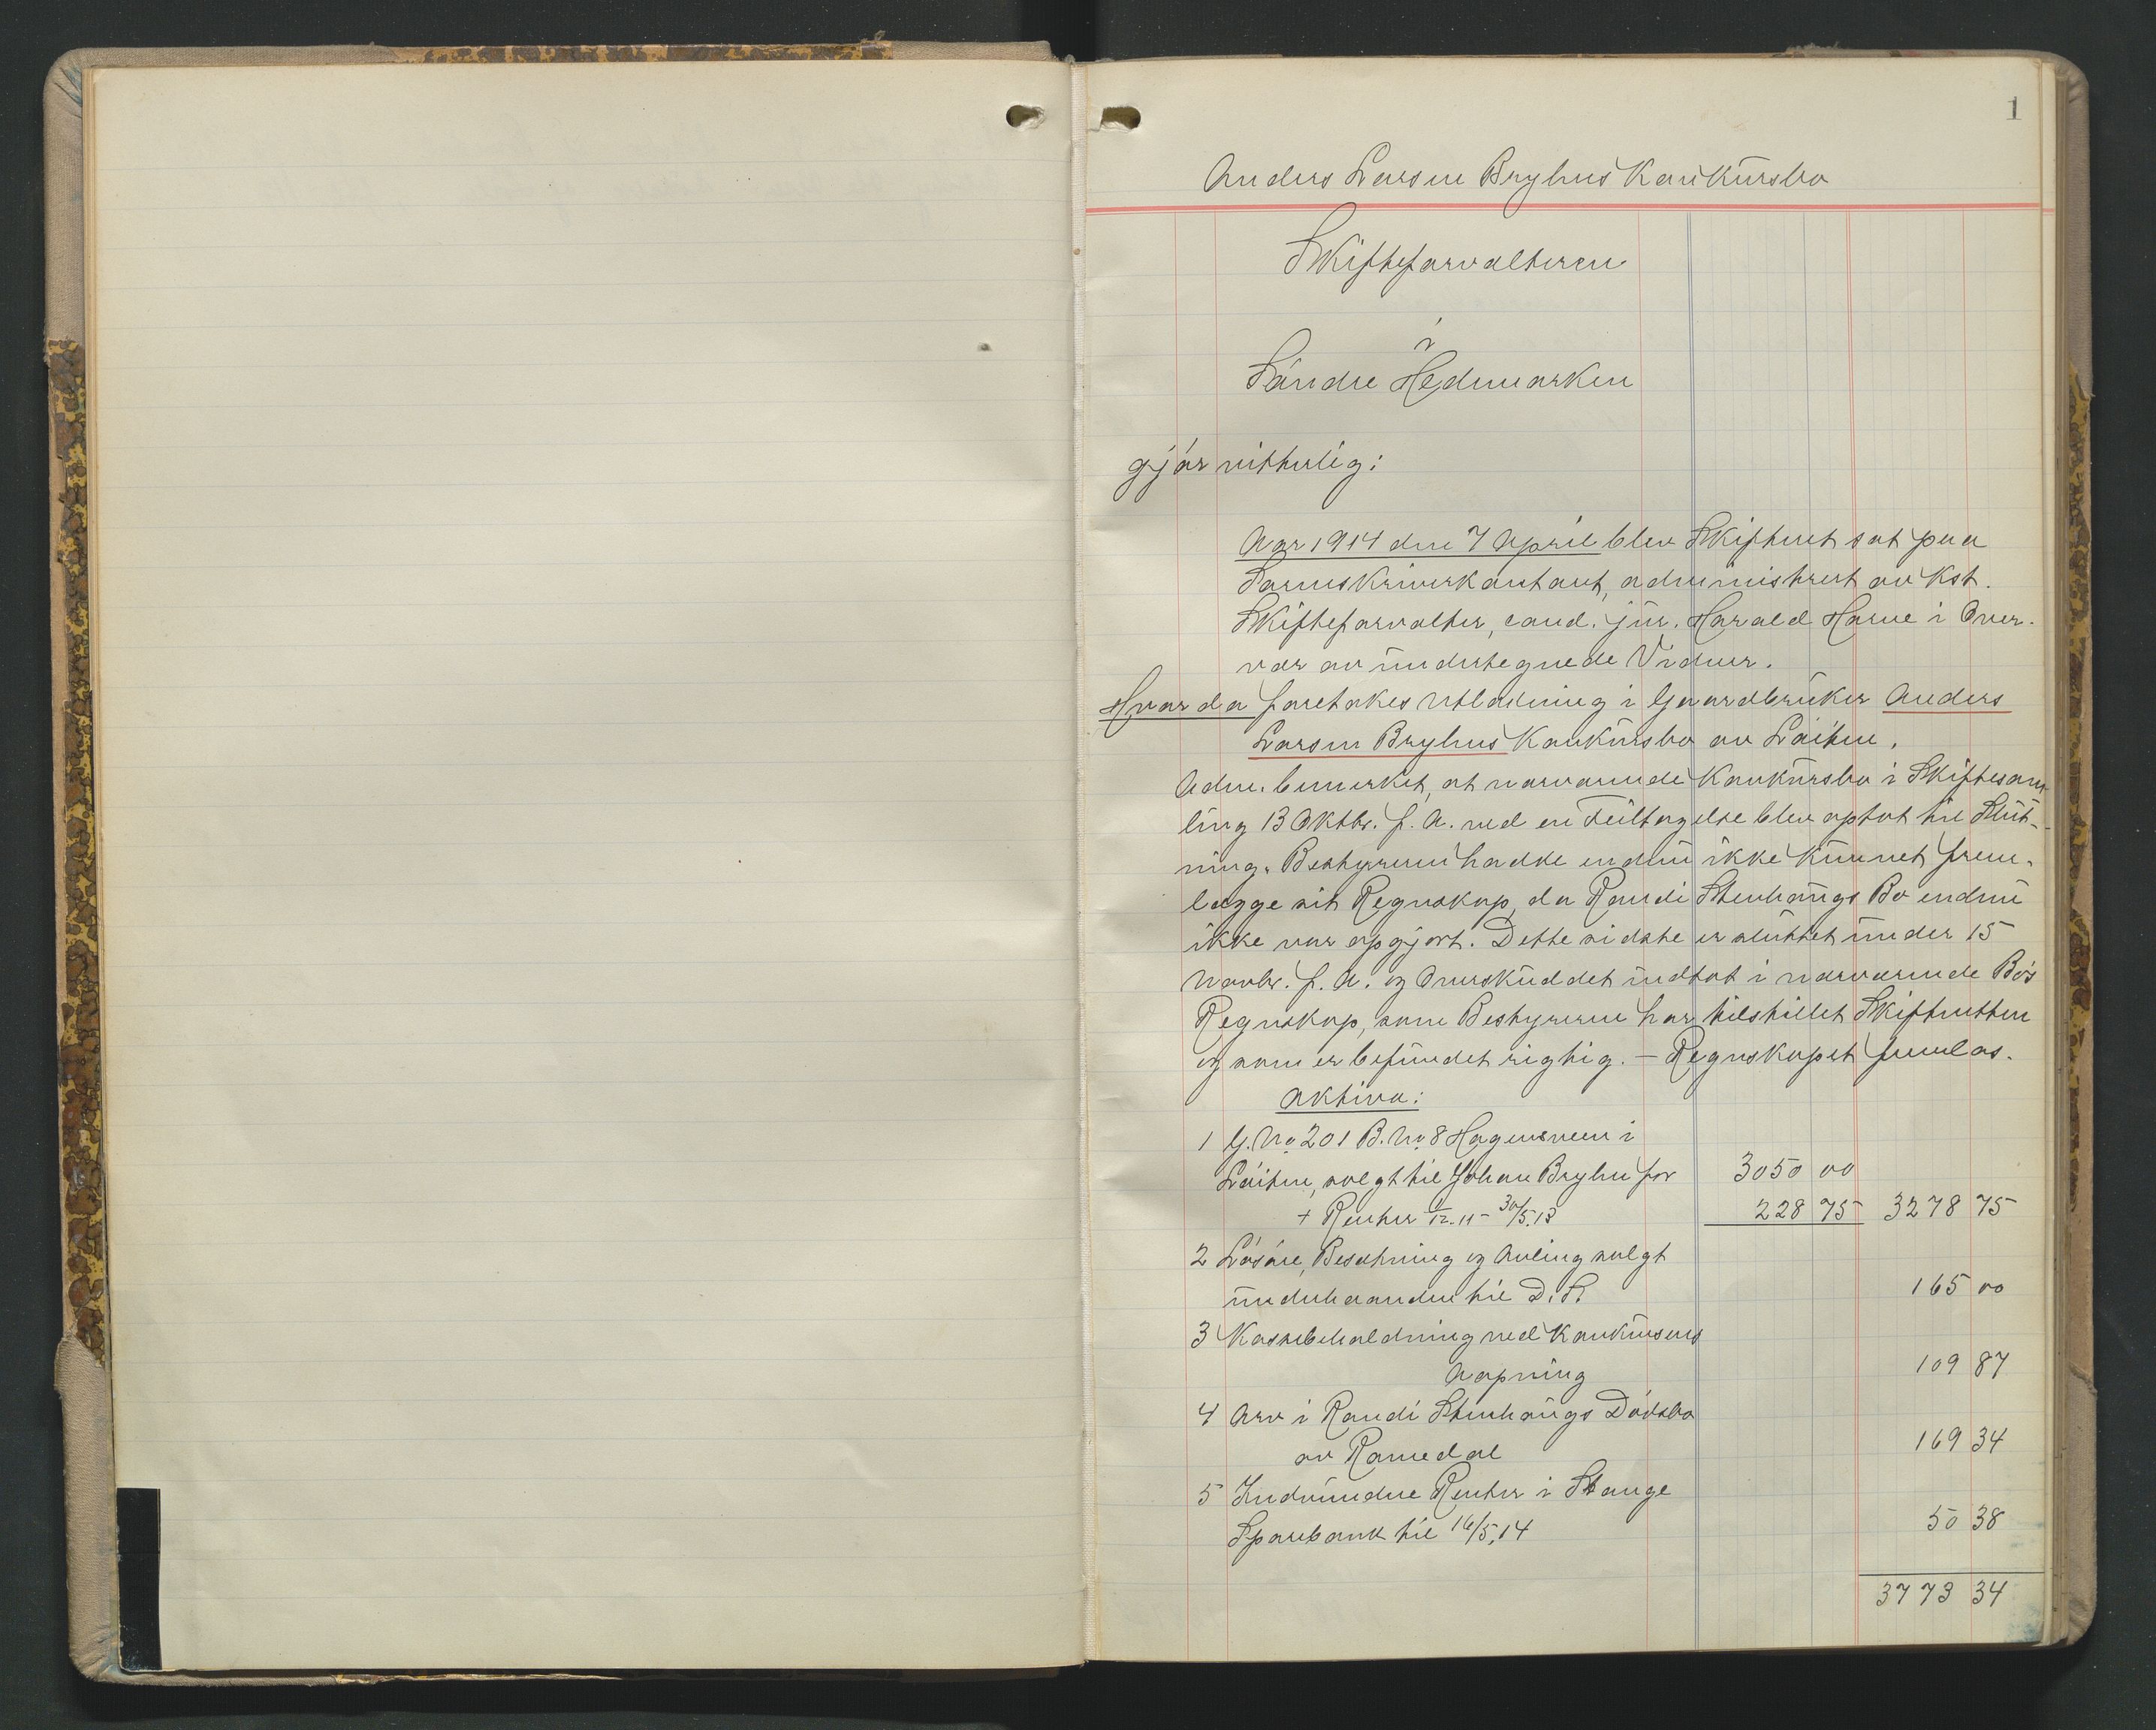 1
Anders Larsen Bryhns Konkursbo
Skifteforvalteren
i
Søndre Hedemarken
gjør vitterlig:
Aar 1914 den 7 April blev Skifteret sat paa
Sorenskriverkontoret, administrert av Kst.
Skifteforvalter, cand. jur. Harald Horne i Over-
vær av undertegnede Vidner.
Hvorda foretokes Utlodning i Gaardbruker Anders
Larsen Bryhns Konkursbo av Løiten.
Adm. bemerket, at nærværende Konkursbo i Skiftesam-
ling 13 Oktbr. f. A. ved en Feiltagelse blev optat til Slut-
ning. Bestyreren hadde endnu ikke kunnet frem-
lægge sit Regnskap, da Randi Stenhaugs Bo endnu
ikke var opgjort. Dette sidste er sluttet under 15
Novbr. f. A. og Overskuddet indtat i nærværende Bo's
Regnskap, som Bestyreren har tilstillet Skifteretten
og som er befundet rigtig. — Regnskapet fremlas.
Aktiva:
1 G. No 201 B. No 8 Hagensveen i
Løiten, solgt til Johan Bryhn for 3050 00
+ Renter 12.11 - 30/5.13 228 75 3278 75
2 Løsøre, Besætning og Avling solgt
underhaanden til D. S. 165 00
3 Kassebeholdning ved Konkursens
Aapning 109 87
4 Arv i Randi Stenhaugs Dødsbo
av Romedal 169 34
5 Indvundne Renter i Stange
Sparebank til 16/5.14 50 38
3773 34